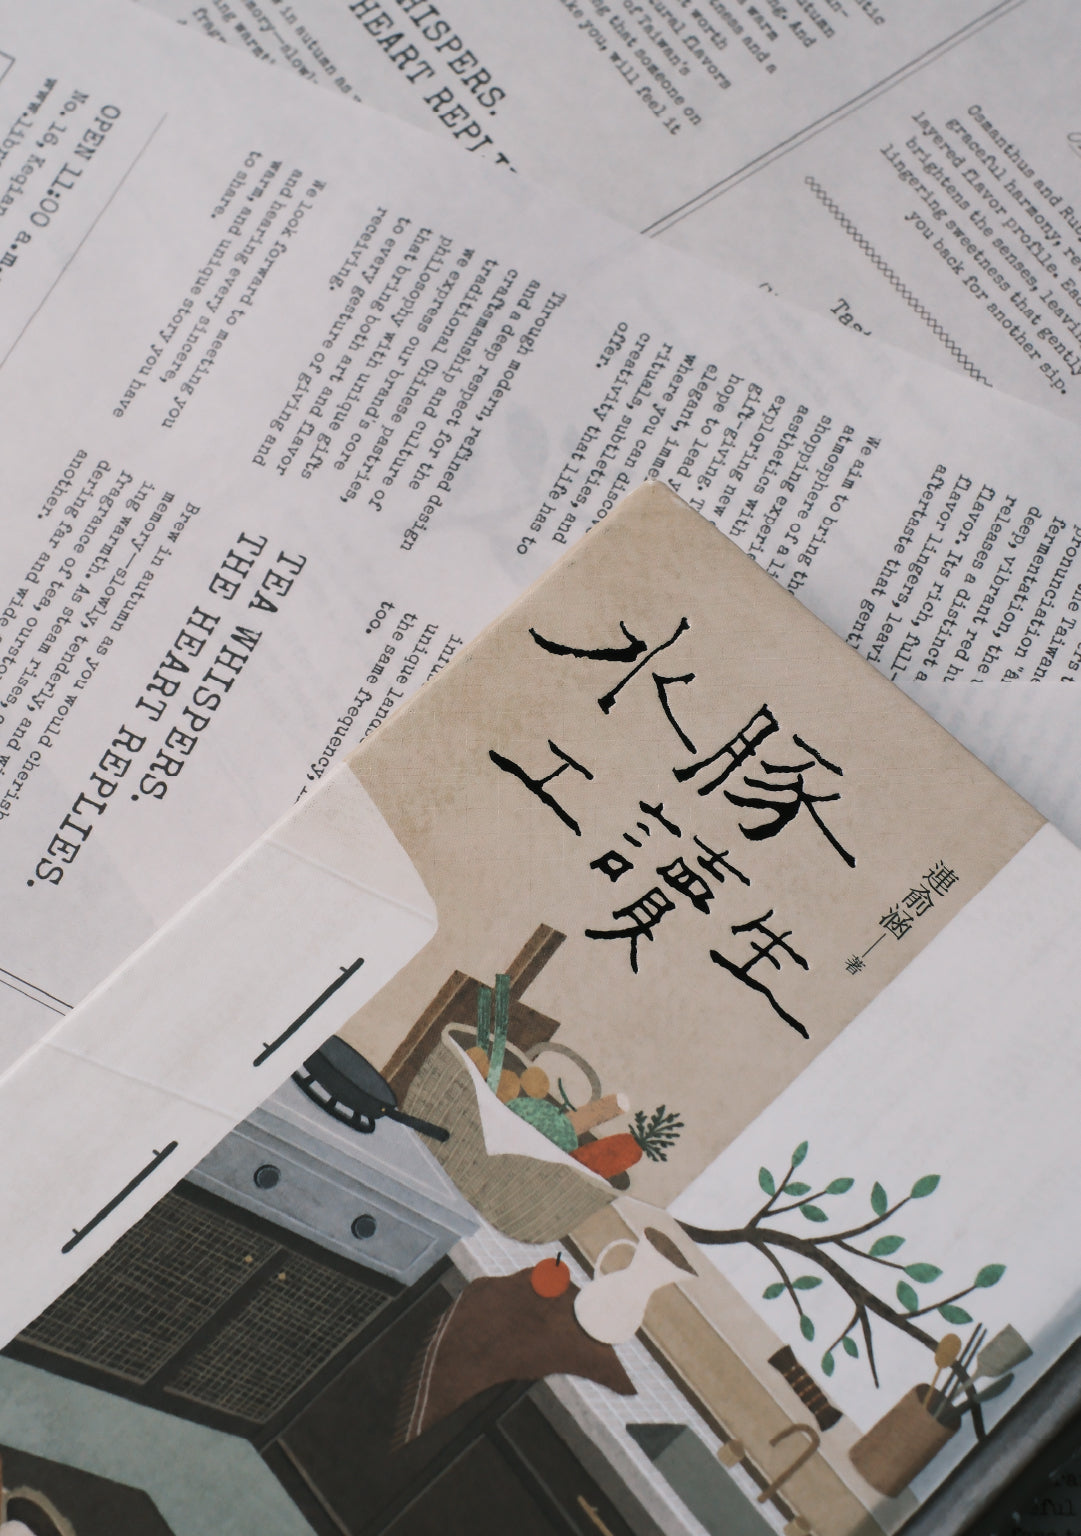 水豚
工讀生
連俞涵—著
TEA WHISPERS.
THE HEART REPLIES.
Brew in autumn as you would cherish
memory—slowly, tenderly, and wi
ing warmth. As steam rises,
fragrance of tea, ours
dering far and wide
another.
We aim to bring th
atmosphere of a li
shopping experi
aesthetics with
exploring new
gift-giving. T
hope to lead y
elegant, imme
where you can discov
rituals, subtleties, and
creativity that life has to
offer.
Through modern, refined design
and a deep respect for the
craftsmanship and culture of
traditional Chinese pastries,
we express our brand's core
philosophy with unique gifts
that bring both art and flavor
to every gesture of giving and
receiving.
We look forward to meeting you
and hearing every sincere,
warm, and unique story you have
to share.
OPEN 11:00 a.m.
No. 16, Keqian
www.libr
unique lands
the same frequency,
too.
HISPERS.
HEART REPLI
in autumn as
memory—slowl
ing warmt
frag
tness and a
t worth
tural flavors
of Taiwan's
ng that someone on
ke you, will feel it
Osmanthus and Ru
graceful harmony, re
layered flavor profile. Ea
brightens the senses, leavi
lingering sweetness that gently
you back for another sip.
Tas
Taiwane
pronunciation
fermentation,
deep, vibrant red h
releases a distinct
flavor. Its rich, full-
flavor lingers, leavi
aftertaste that gent